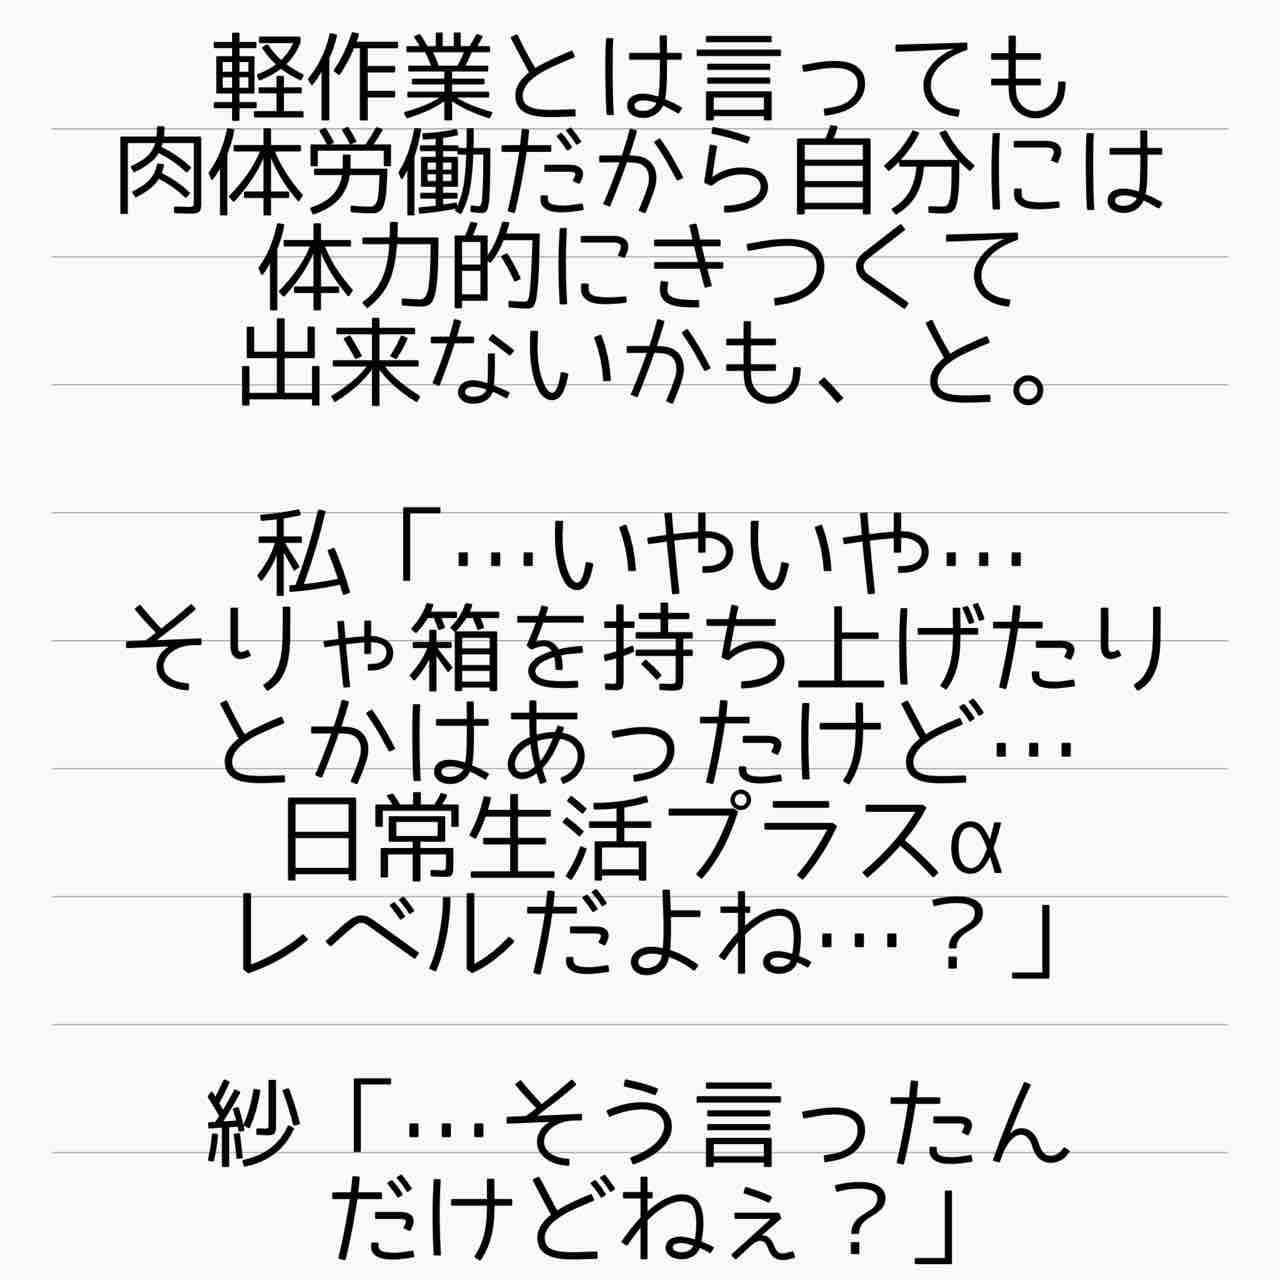 軽作業とは言っても
肉体労働だから自分には
体力的にきつくて
出来ないかも、と。
私「…いやいや…
そりゃ箱を持ち上げたり
とかはあったけど…
日常生活プラスα
レベルだよね…？」
紗「…そう言ったん
だけどねぇ？」